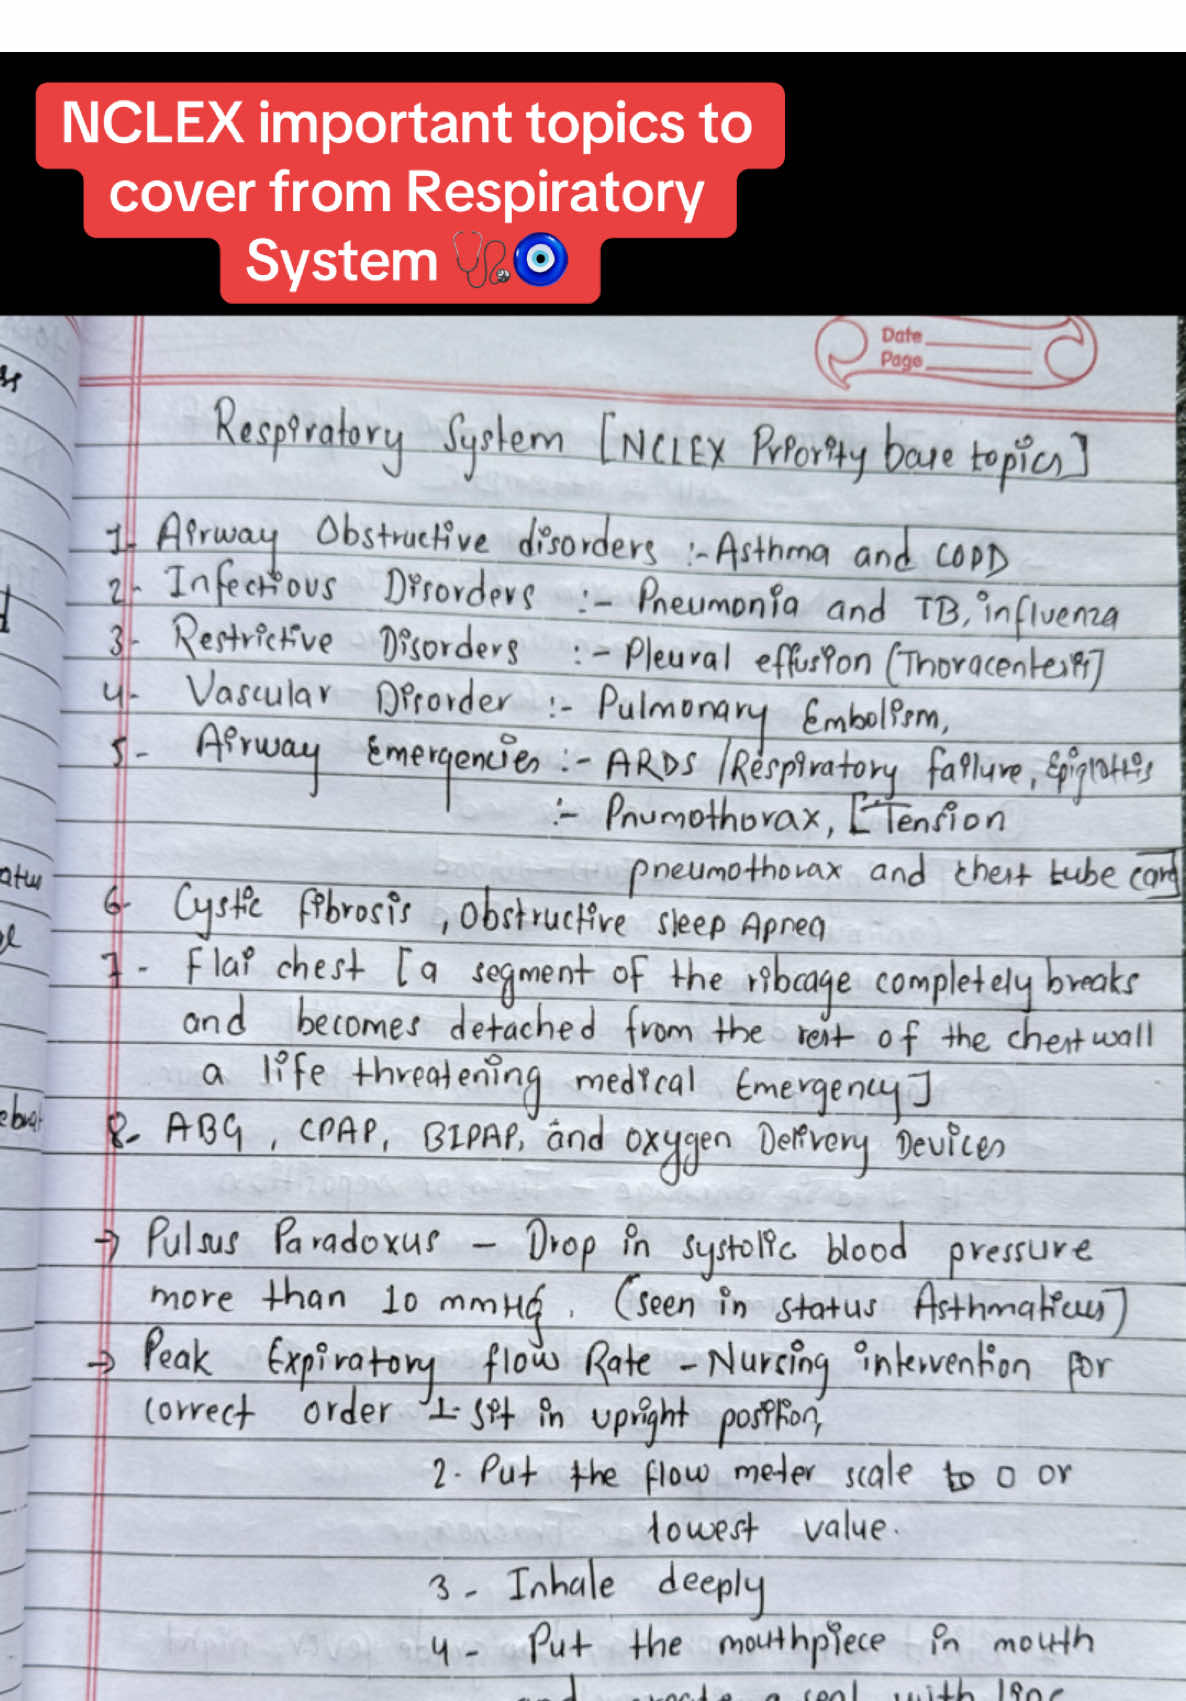 NCLEX important topics to
cover from Respiratory
System 🩺🧿
Date
Page
Respiratory System [NCLEX Priority base topics]
1- Airway Obstructive disorders :- Asthma and COPD
2- Infectious Disorders :- Pneumonia and TB, influenza
3- Restrictive Disorders :- Pleural effusion (Thoracentesis]
4- Vascular Disorder :- Pulmonary Embolism,
5- Airway Emergencies :- ARDS / Respiratory failure, Epiglottis
:- Pnumothorax, [Tension
pneumothorax and chest tube care]
6- Cystic fibrosis, Obstructive sleep Apnea
7- Flai chest [a segment of the ribcage completely breaks
and becomes detached from the rest of the chest wall
a life threatening medical Emergency]
8- ABG, CPAP, BIPAP, and oxygen Delivery Devices
→ Pulsus Paradoxus - Drop in systolic blood pressure
more than 10 mmHg. (seen in status Asthmaticus]
→ Peak Expiratory flow Rate - Nursing intervention for
correct order 1- sit in upright position,
2- Put the flow meter scale to 0 or
lowest value.
3- Inhale deeply
4- Put the mouthpiece in mouth
and create a seal with lips